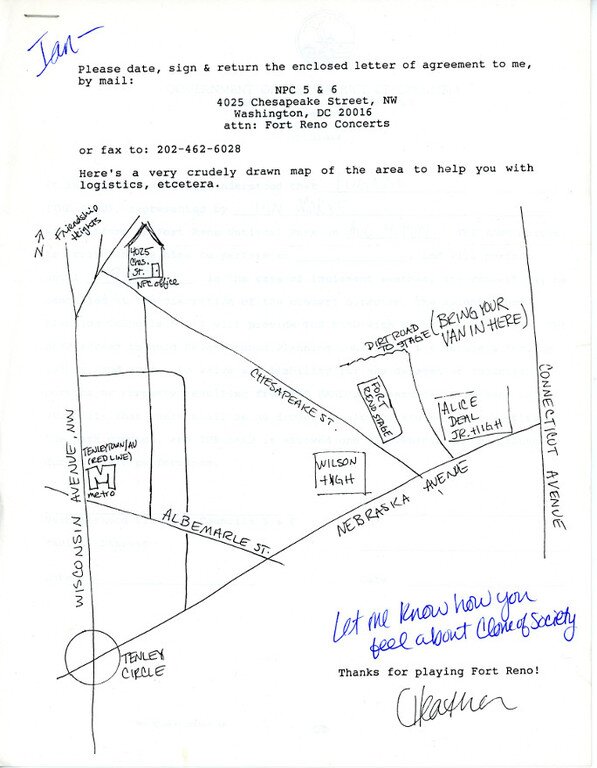 Ian-
Please date, sign & return the enclosed letter of agreement to me,
by mail:
NPC 5 & 6
4025 Chesapeake Street, NW
Washington, DC 20016
attn: Fort Reno Concerts
or fax to: 202-462-6028
Here's a very crudely drawn map of the area to help you with
logistics, etcetera.
N
Friendship
Heights
4025
Ches.
St.
NPC office
DIRT ROAD
TO STAGE
(BRING YOUR
VAN IN HERE)
CHESAPEAKE ST.
FORT
RENO STAGE
ALICE
DEAL
JR. HIGH
CONNECTICUT AVENUE
WISCONSIN AVENUE, NW
TENLEYTOWN/AU
(RED LINE)
M
metro
WILSON
HIGH
NEBRASKA AVENUE
ALBEMARLE ST.
TENLEY
CIRCLE
Let me know how you
feel about Clone of Society
Thanks for playing Fort Reno!
Heather